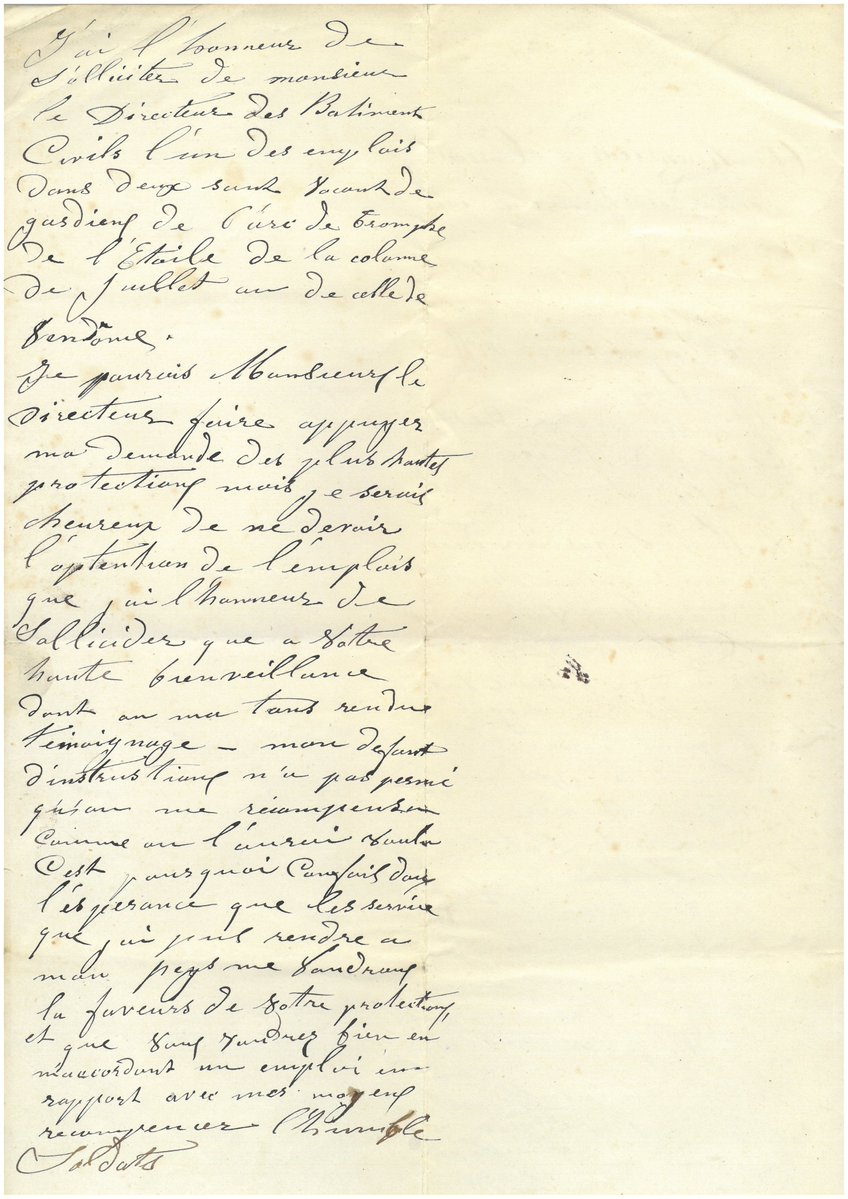 J'ai l'honneur de
Solliciter de monsieur
le Directeur des Batiment
Civils l'un des emplois
dans deux sont vacant de
gardiens de l'arc de tromphe
de l'Etoile de la colonne
de Juillet ou de celle de
Vendôme.
Je pourois Monsieur le
Directeur faire appuyer
ma demande des plus hautes
protections mais je serais
heureux de ne devoir
l'optention de l'emplois
que j'ai l'honneur de
Sollicider que a votre
haute bienveillance
dont on ma tans rendue
témoignage – mon defaut
d'instrustions n'a pas permi
qu'on me récompensa
comme on l'aurai voulu
C'est pourquoi Confais dans
l'ésperance que les service
que j'ai puis rendre a
mon peys me vaudrons
la faveurs de votre protections,
et que vous voudrez bien en
m'accordant un emploi en
rapport avec mes moyens
recompencer l'humble
Soldats